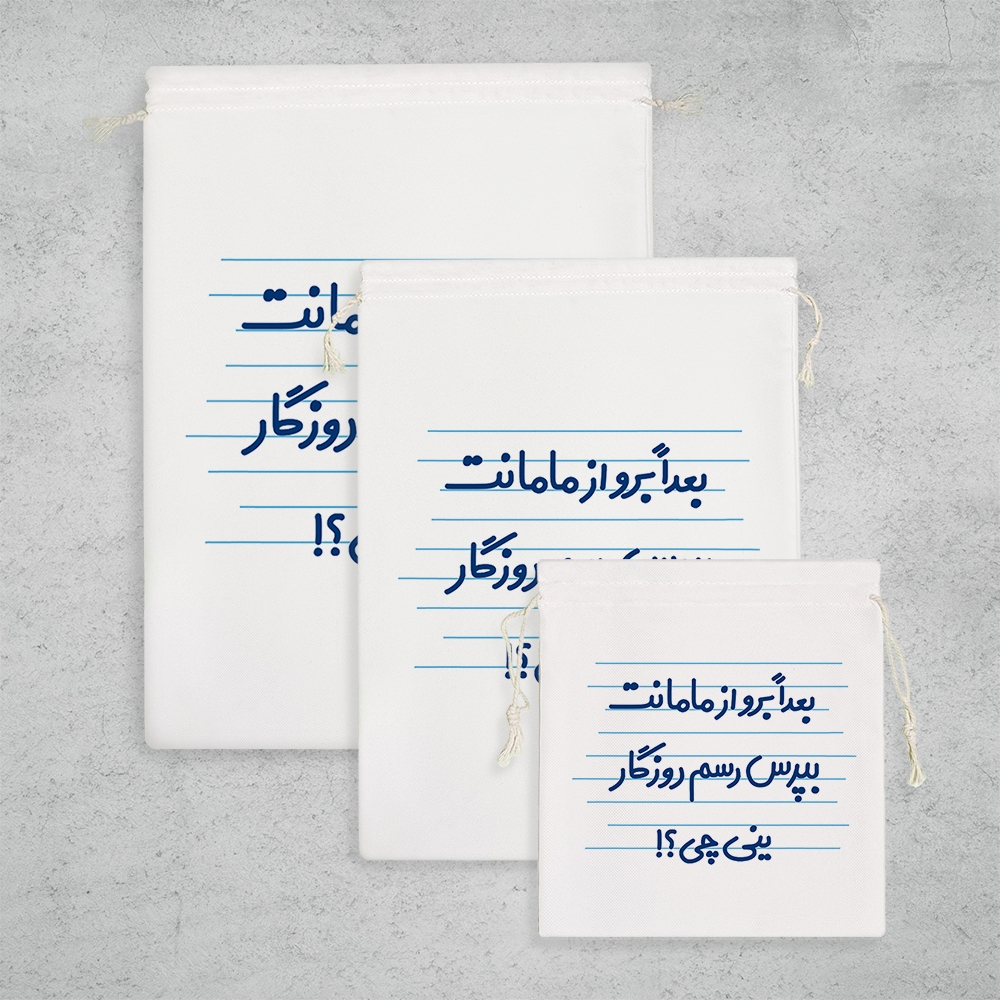 مانت
روزگار
؟!
بعداً برو از مامانت
روزگار
؟!
بعداً برو از مامانت
بپرس رسم روزگار
ینی چی؟!